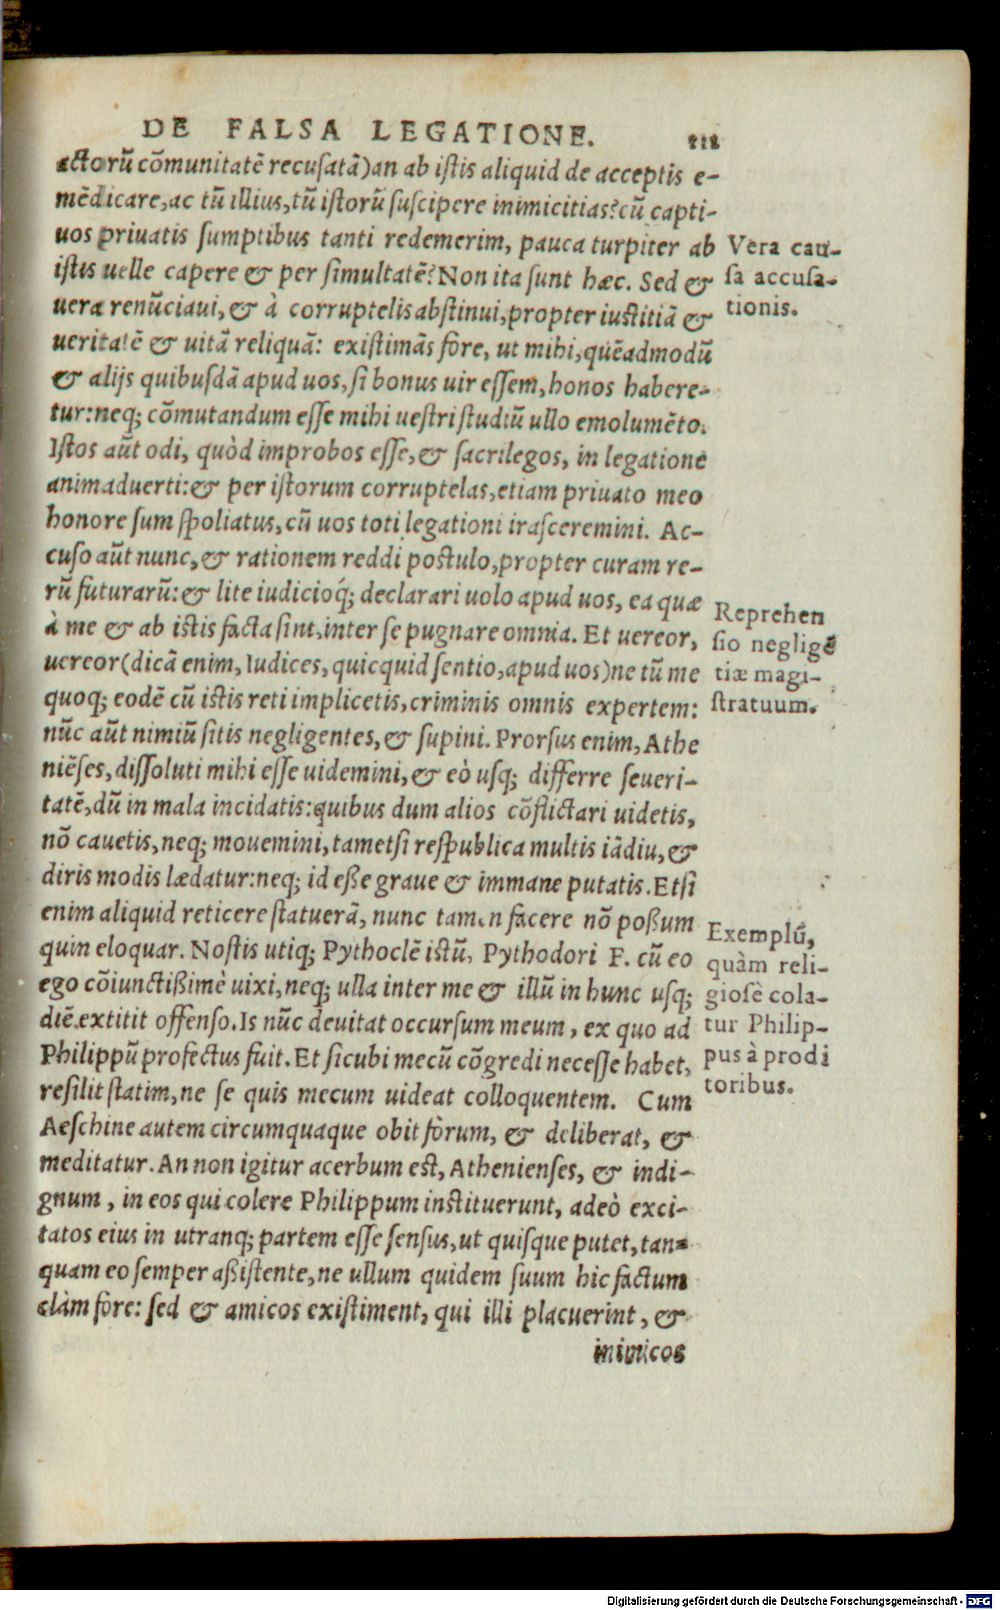 DE FALSA LEGATIONE. 111
actorũ cõmunitatẽ recusatã)an ab istis aliquid de acceptis e-
mẽdicare, ac tũ illius, tũ istorũ suscipere inimicitias? cũ capti-
uos priuatis sumptibus tanti redemerim, pauca turpiter ab
istis uelle capere & per simultatẽ? Non ita sunt hæc. Sed &
uera renũciaui, & à corruptelis abstinui, propter iustitiã &
ueritatẽ & uitã reliquã: existimãs fore, ut mihi, quẽadmodũ
& alijs quibusdã apud uos, si bonus uir essem, honos habere-
tur: neq; cõmutandum esse mihi uestri studiũ ullo emolumẽto.
Istos aũt odi, quòd improbos esse, & sacrilegos, in legatione
animaduerti: & per istorum corruptelas, etiam priuato meo
honore sum spoliatus, cũ uos toti legationi irasceremini. Ac-
cuso aũt nunc, & rationem reddi postulo, propter curam re-
rũ futurarũ: & lite iudicioq́; declarari uolo apud uos, ea quæ
à me & ab istis facta sint, inter se pugnare omnia. Et uereor,
uereor (dicã enim, Iudices, quicquid sentio, apud uos) ne tũ me
quoq; eodẽ cũ istis reti implicetis, criminis omnis expertem:
nũc aũt nimiũ sitis negligentes, & supini. Prorsus enim, Athe
niẽses, dissoluti mihi esse uidemini, & eò usq; differre seueri-
tatẽ, dũ in mala incidatis: quibus dum alios cõflictari uidetis,
nõ cauetis, neq; mouemini, tametsi respublica multis iãdiu, &
diris modis lædatur: neq; id eße graue & immane putatis. Etsi
enim aliquid reticere statuerã, nunc tamen facere nõ poßum
quin eloquar. Nostis utiq; Pythoclẽ istũ, Pythodori F. cũ eo
ego cõiunctißimè uixi, neq; ulla inter me & illũ in hunc usq;
diẽ extitit offenso. Is nũc deuitat occursum meum, ex quo ad
Philippũ profectus fuit. Et sicubi mecũ cõgredi necesse habet,
resilit statim, ne se quis mecum uideat colloquentem. Cum
Aeschine autem circumquaque obit fòrum, & deliberat, &
meditatur. An non igitur acerbum est, Athenienses, & indi-
gnum, in eos qui colere Philippum instituerunt, adeò exci-
tatos eius in utranq; partem esse sensus, ut quisque putet, tan-
quam eo semper aßistente, ne ullum quidem suum hic factum
clàm fore: sed & amicos existiment, qui illi placuerint, &
inimicos
Vera cau-
sa accusa-
tionis.
Reprehen
sio negligẽ
tiæ magi-
stratuum.
Exemplũ,
quàm reli-
giosè cola-
tur Philip-
pus à prodi
toribus.
Digitalisierung gefördert durch die Deutsche Forschungsgemeinschaft - DFG